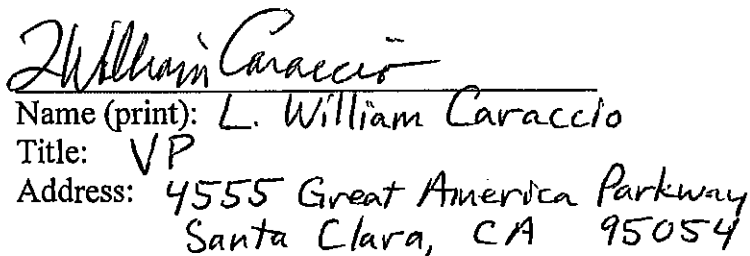 L William Caraccio
Name (print): L. William Caraccio
Title: VP
Address: 4555 Great America Parkway
Santa Clara, CA 95054